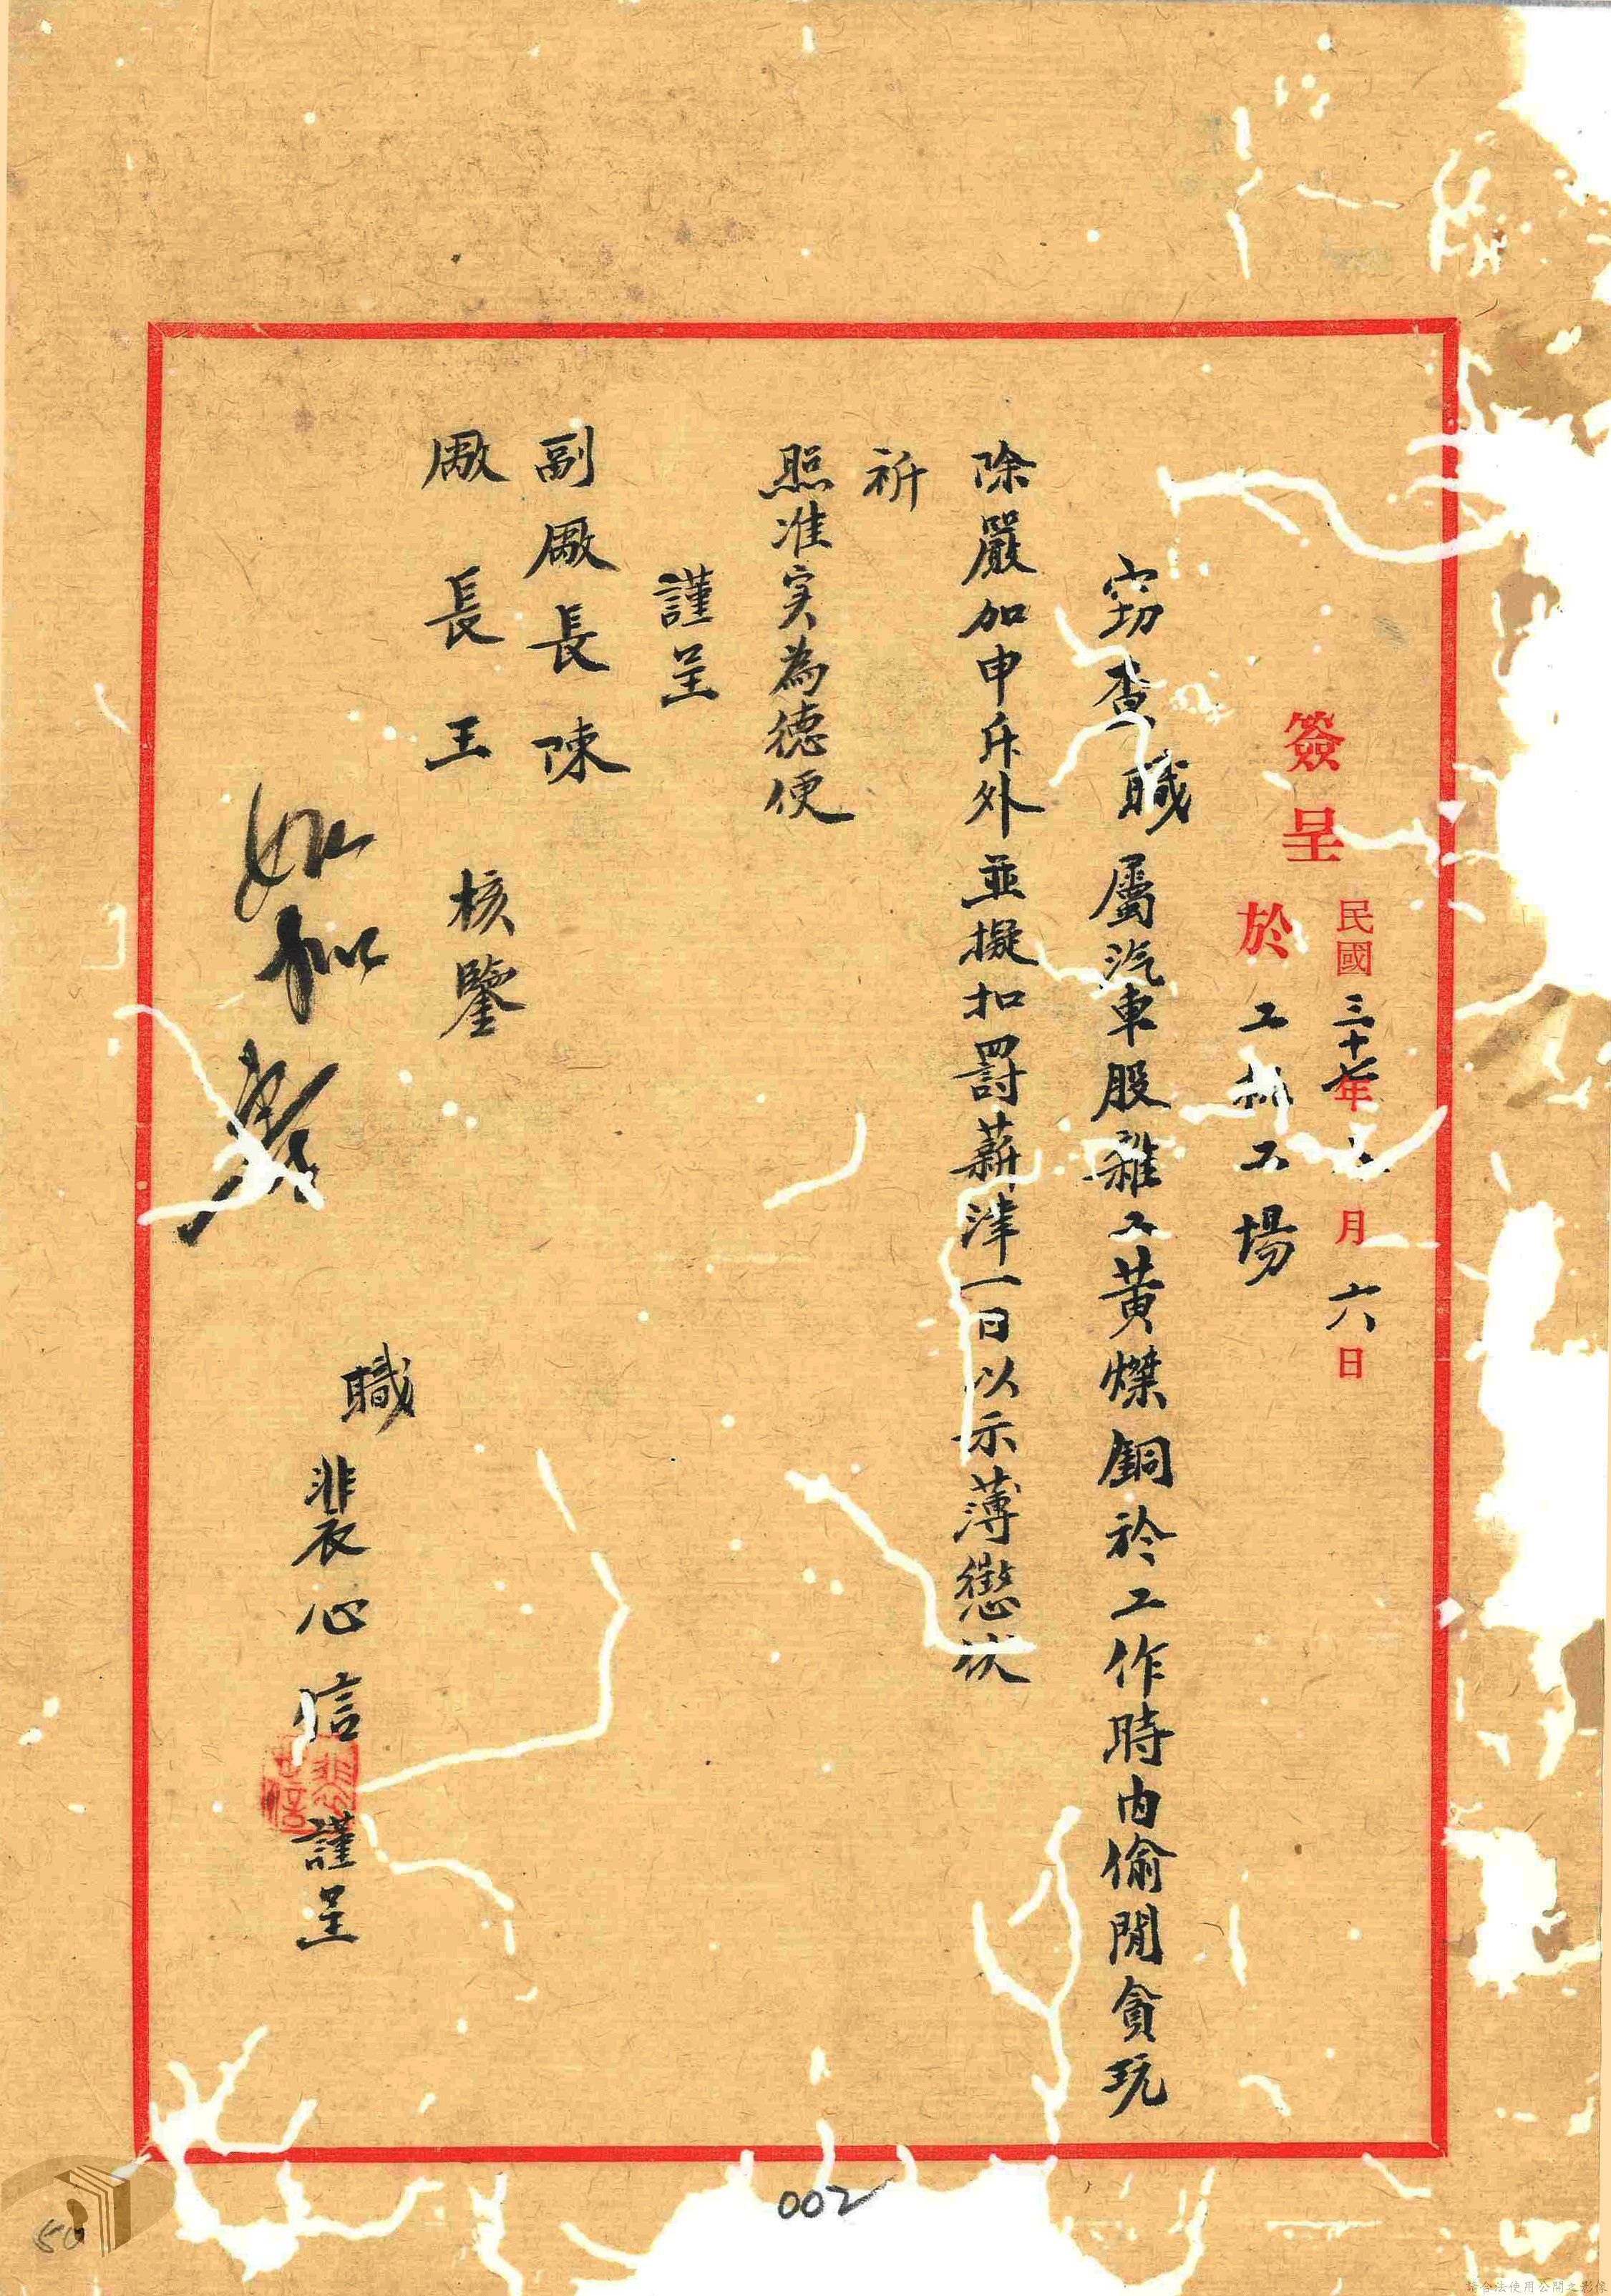 簽呈
民國三十七年 月六日
於工 工場
窃查職屬汽車股雜工黃燦銅於工作時內偷閒貪玩
除嚴加申斥外並擬扣罰薪津一日以示薄懲伏
祈
照准实為德便
謹呈
副廠長陳
廠長王 核鑒
如擬
職裴心信謹呈
002
50
請合法使用公開之影像